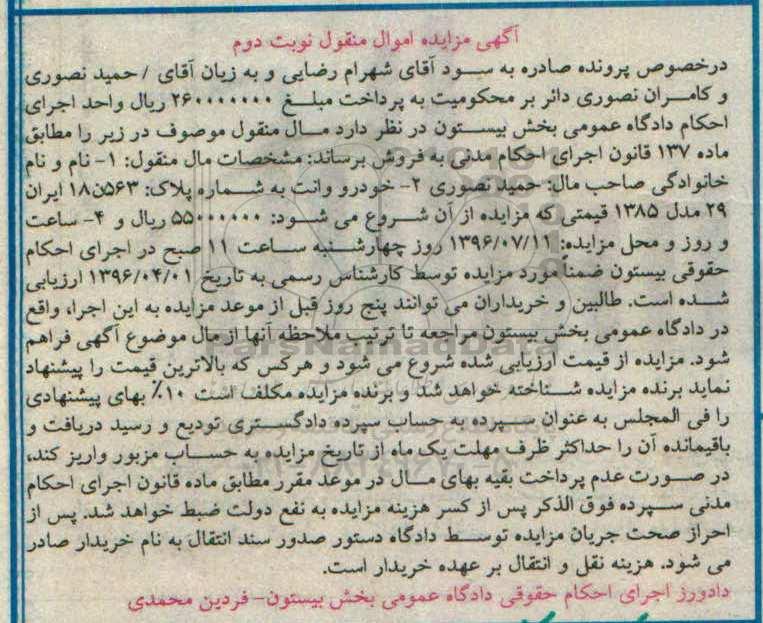 آگهی مزایده اموال منقول نوبت دوم
درخصوص پرونده صادره به سود آقای شهرام رضایی و به زیان آقای / حمید نصوری
و کامران نصوری دائر بر محکومیت به پرداخت مبلغ ۲۶۰۰۰۰۰۰۰ ریال واحد اجرای
احکام دادگاه عمومی بخش بیستون در نظر دارد مال منقول موصوف در زیر را مطابق
ماده ۱۳۷ قانون اجرای احکام مدنی به فروش برساند: مشخصات مال منقول: ۱- نام و نام
خانوادگی صاحب مال: حمید نصوری ۲- خودرو وانت به شماره پلاک: ۵۶۳ن۱۸ ایران
۲۹ مدل ۱۳۸۵ قیمتی که مزایده از آن شروع می شود: ۵۵۰۰۰۰۰۰ ریال و ۴- ساعت
و روز و محل مزایده: ۱۳۹۶/۰۷/۱۱ روز چهارشنبه ساعت ۱۱ صبح در اجرای احکام
حقوقی بیستون ضمناً مورد مزایده توسط کارشناس رسمی به تاریخ ۱۳۹۶/۰۴/۰۱ ارزیابی
شده است. طالبین و خریداران می توانند پنج روز قبل از موعد مزایده به این اجرا، واقع
در دادگاه عمومی بخش بیستون مراجعه تا ترتیب ملاحظه آنها از مال موضوع آگهی فراهم
شود. مزایده از قیمت ارزیابی شده شروع می شود و هرکس که بالاترین قیمت را پیشنهاد
نماید برنده مزایده شناخته خواهد شد و برنده مزایده مکلف است ۱۰٪ بهای پیشنهادی
را فی المجلس به عنوان سپرده به حساب سپرده دادگستری تودیع و رسید دریافت و
باقیمانده آن را حداکثر ظرف مهلت یک ماه از تاریخ مزایده به حساب مزبور واریز کند،
در صورت عدم پرداخت بقیه بهای مال در موعد مقرر مطابق ماده قانون اجرای احکام
مدنی سپرده فوق الذکر پس از کسر هزینه مزایده به نفع دولت ضبط خواهد شد. پس از
احراز صحت جریان مزایده توسط دادگاه دستور صدور سند انتقال به نام خریدار صادر
می شود. هزینه نقل و انتقال بر عهده خریدار است.
دادورز اجرای احکام حقوقی دادگاه عمومی بخش بیستون- فردین محمدی